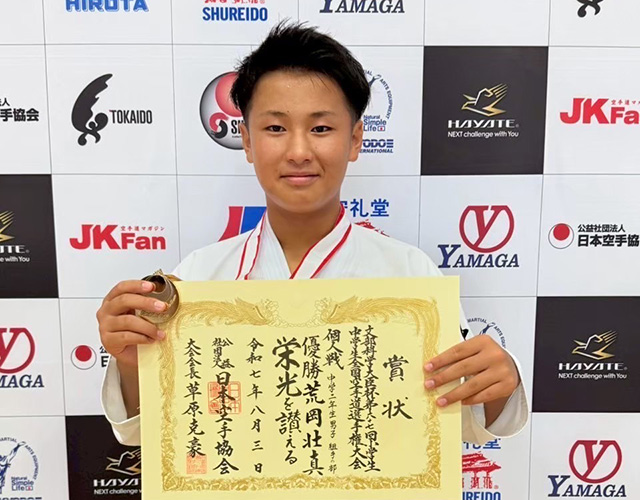 HIROTA
SHUREIDO
YAMAGA
法人
空手協会
TOKAIDO
HAYATE
NEXT challenge with You
JKFan
Natural
Simple
Life
INTERNATIONAL
空手道マガジン
JKFan
守礼堂
YAMAGA
公益社団法人
日本空手協
HAYATE
賞状
中学生全国空手道選手権大会
個人戦 中学二年生男子 組手の部
優勝 荒岡壮真
栄光を讃える
令和七年八月三日
公益社団法人 日本空手協会
大会会長 草原克豪
YAMAGA
HAYATE
NEXT challenge with You
YAMAGA